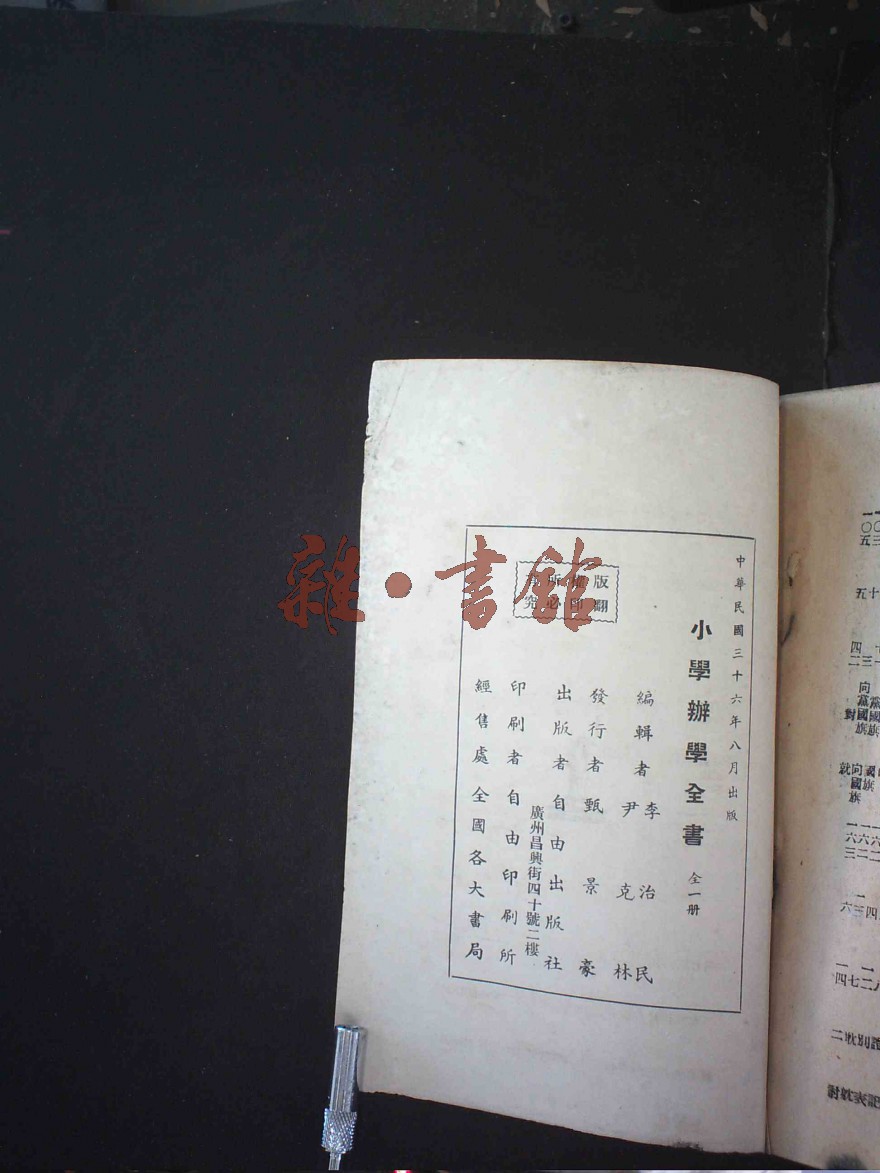 中華民國三十六年八月出版
小學辦學全書 全一册
編輯者 李治民
尹克林
發行者 甄景豪
出版者 自由出版社
廣州昌興街四十號二樓
印刷者 自由印刷所
經售處 全國各大書局
版
翻印
所必
究
雜·書館